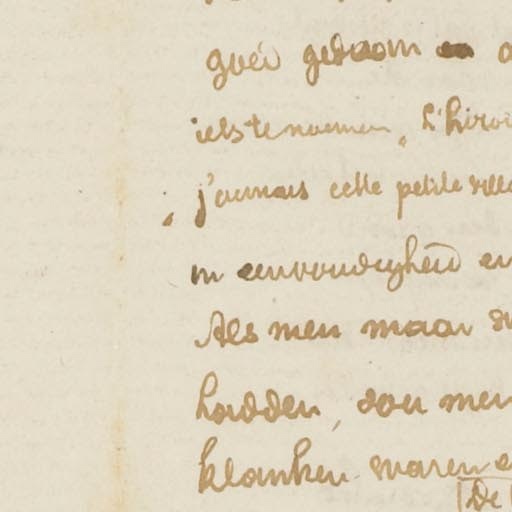 goed gedaan en
iets te noemen „L'hiron
„ j'aimais cette petite ville
in eenvoudigheid en
Als men maar
hadden, zou men
klanken waren
De